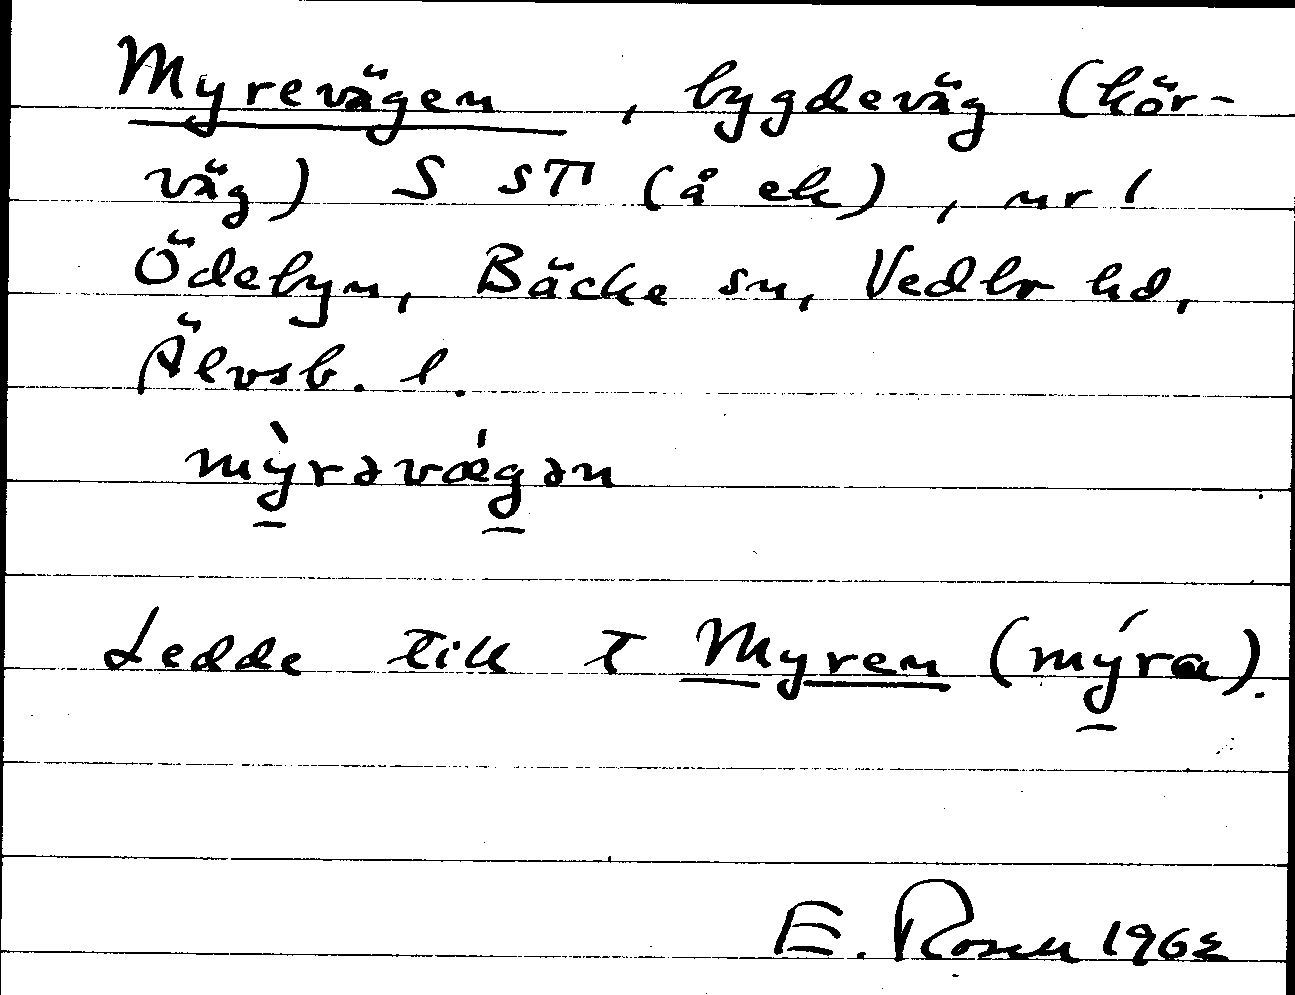 Myrevägen, bygdeväg (kör-
väg) S STI (å ek), nr 1
Ödebyn, Bäcke sn, Vedbo hd,
Älvsb. l.
mỳ̠rəvǽg̠ən
Ledde till t Myren (mý̠ra).
E. Rosen 1962